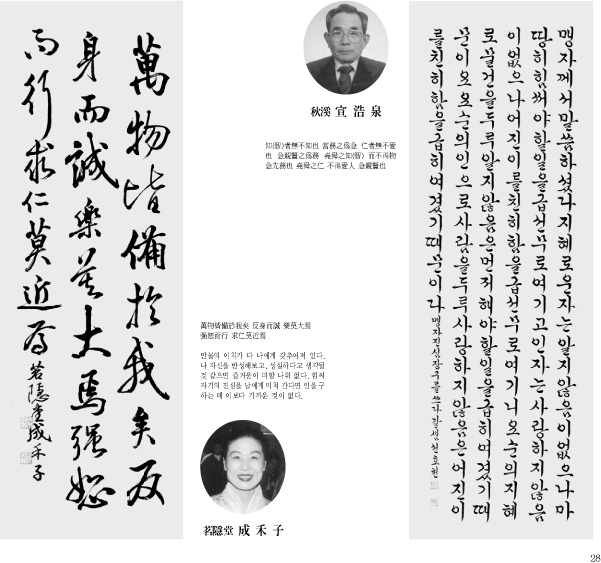 萬物皆備於我矣反
身而誠樂莫大焉强恕
而行求仁莫近焉 茗隱堂成禾子
秋溪 宣浩泉
知(智)者無不知也 當務之爲急 仁者無不愛
也 急親賢之爲務 堯舜之知(智) 而不徧物
急先務也 堯舜之仁 不徧愛人 急親賢也
萬物皆備於我矣 反身而誠 樂莫大焉
强恕而行 求仁莫近焉
만물의 이치가 다 나에게 갖추어져 있다.
나 자신을 반성해보고, 성실하다고 생각될
것 같으면 즐거움이 더할 나위 없다. 힘써
자기의 진심을 남에게 미쳐 간다면 인을 구
하는 데 이보다 가까운 것이 없다.
茗隱堂 成禾子
맹자께서말씀하셨다지혜로운자는알지않음이없으나마
땅히힘써야할일을급선무로여기고인자는사랑하지않음
이없으나어진이를친히함을급선무로여기니요순의지혜
로물건을두루알지않음은먼저해야할일을급히여겼기때
문이요요순의인으로사람을두루사랑하지않음은어진이
를친히함을급히여겼기때문이다 맹자진심장구를쓰다
28